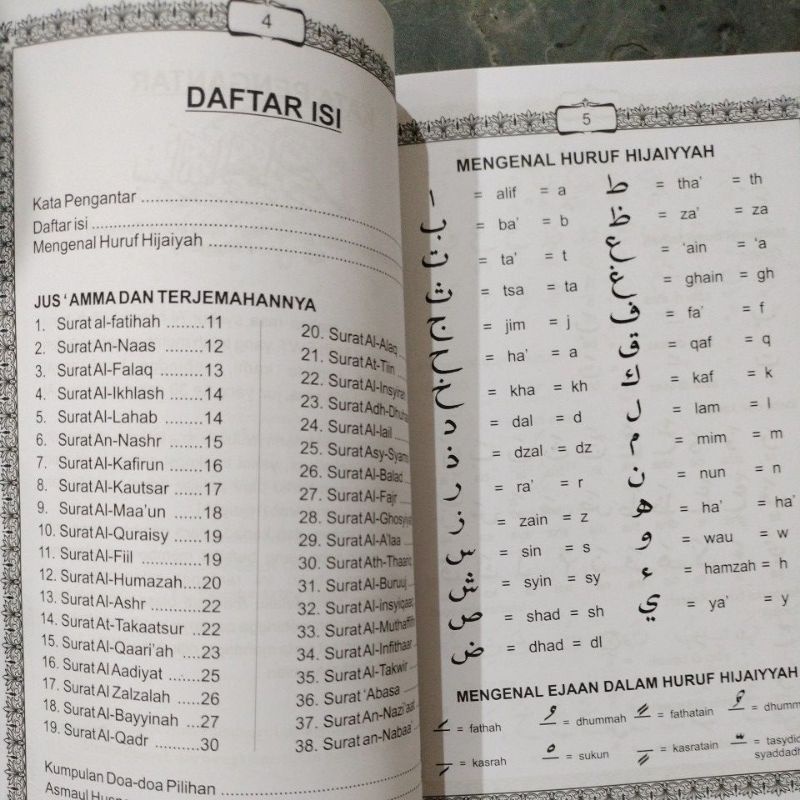 4
DAFTAR ISI
Kata Pengantar ........................................
Daftar isi ........................................
Mengenal Huruf Hijaiyah ........................................
JUS 'AMMA DAN TERJEMAHANNYA
1. Surat al-fatihah ........11
2. Surat An-Naas ........12
3. Surat Al-Falaq ........13
4. Surat Al-Ikhlash .......14
5. Surat Al-Lahab ........14
6. Surat An-Nashr ........15
7. Surat Al-Kafirun .......16
8. Surat Al-Kautsar ......17
9. Surat Al-Maa'un .......18
10. Surat Al-Quraisy ......19
11. Surat Al-Fiil .............19
12. Surat Al-Humazah....20
13. Surat Al-Ashr ...........22
14. Surat At-Takaatsur ..22
15. Surat Al-Qaari'ah ....23
16. Surat Al Aadiyat ......25
17. Surat Al Zalzalah .....26
18. Surat Al-Bayyinah ...27
19. Surat Al-Qadr ..........30
20. Surat Al-Alaq
21. Surat At-Tiin
22. Surat Al-Insyirah
23. Surat Adh-Dhuha
24. Surat Al-lail
25. Surat Asy-Syam
26. Surat Al-Balad
27. Surat Al-Fajr
28. Surat Al-Ghosyiya
29. Surat Al-A'laa
30. Surat Ath-Thaariq
31. Surat Al-Buruuj
32. Surat Al-insyiqaaq
33. Surat Al-Muthaffifin
34. Surat Al-Infithaar
35. Surat Al-Takwir
36. Surat 'Abasa
37. Surat An-Nazi'aat
38. Surat an-Nabaa'
Kumpulan Doa-doa Pilihan ........................................
5
MENGENAL HURUF HIJAIYYAH
ا = alif = a
ب = ba' = b
ت = ta' = t
ث = tsa = ta
ج = jim = j
ح = ha' = a
خ = kha = kh
د = dal = d
ذ = dzal = dz
ر = ra' = r
ز = zain = z
س = sin = s
ش = syin = sy
ص = shad = sh
ض = dhad = dl
ط = tha' = th
ظ = za' = za
ع = 'ain = 'a
غ = ghain = gh
ف = fa' = f
ق = qaf = q
ك = kaf = k
ل = lam = l
م = mim = m
ن = nun = n
ه = ha' = ha'
و = wau = w
ء = hamzah = h
ي = ya' = y
MENGENAL EJAAN DALAM HURUF HIJAIYYAH
ـَ = fathah ـُ = dhummah ـً = fathatain ـٌ = dhumm
ـِ = kasrah ـْ = sukun ـٍ = kasratain ـّ = tasydid
syaddadh